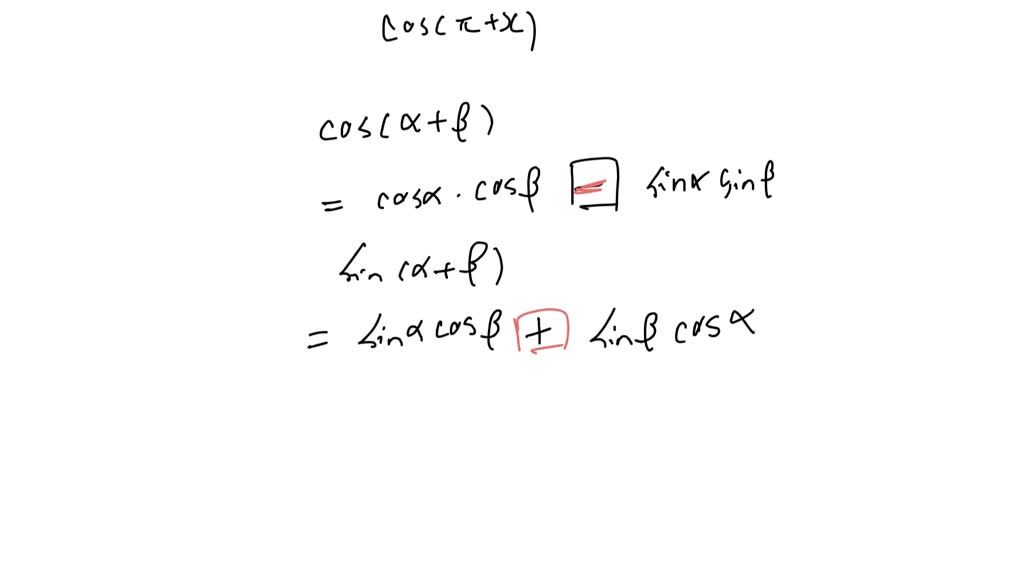 cos(π+x)
cos(α+β)
= cosα · cosβ − sinα sinβ
sin(α+β)
= sinα cosβ + sinβ cosα